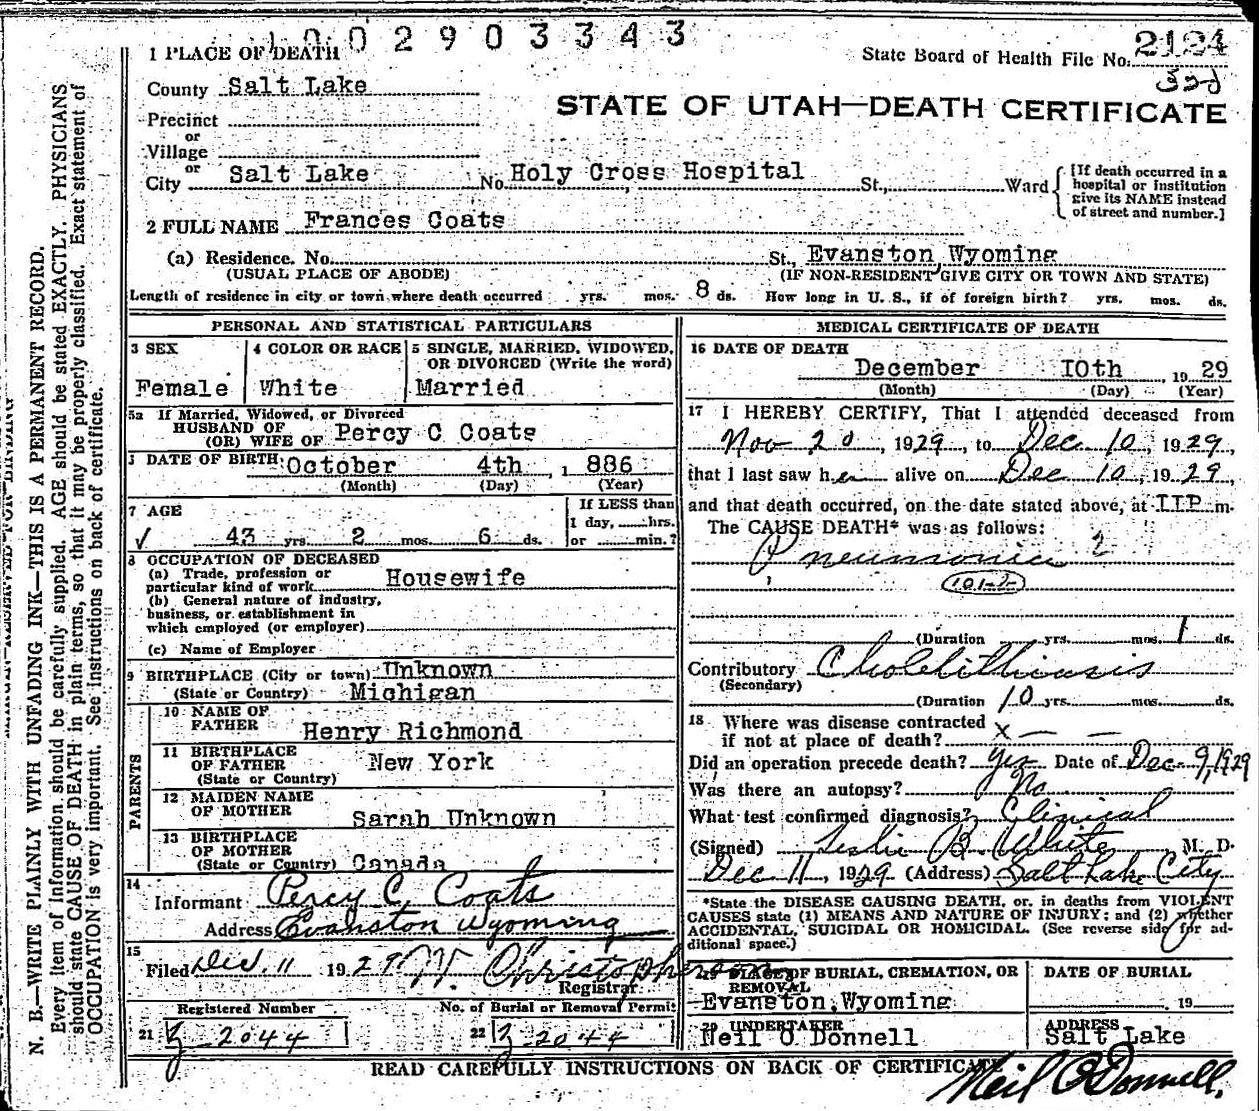 1002903343
1 PLACE OF DEATH
State Board of Health File No. 2124
County Salt Lake
STATE OF UTAH—DEATH CERTIFICATE
Precinct
or
Village
or
City Salt Lake No. Holy Cross Hospital St., Ward
[If death occurred in a
hospital or institution
give its NAME instead
of street and number.]
2 FULL NAME Frances Coats
(a) Residence. No. St., Evanston Wyoming
(USUAL PLACE OF ABODE) (IF NON-RESIDENT GIVE CITY OR TOWN AND STATE)
Length of residence in city or town where death occurred yrs. mos. 8 ds. How long in U. S., if of foreign birth? yrs. mos. ds.
PERSONAL AND STATISTICAL PARTICULARS
3 SEX
Female
4 COLOR OR RACE
White
5 SINGLE, MARRIED, WIDOWED,
OR DIVORCED (Write the word)
Married
5a If Married, Widowed, or Divorced
HUSBAND OF
(OR) WIFE OF Percy C Coats
DATE OF BIRTH: October 4th, 1 886
(Month) (Day) (Year)
7 AGE
43 yrs. 2 mos. 6 ds.
If LESS than
1 day, hrs.
or min.?
8 OCCUPATION OF DECEASED
(a) Trade, profession or
particular kind of work Housewife
(b) General nature of industry,
business, or establishment in
which employed (or employer)
(c) Name of Employer
9 BIRTHPLACE (City or town) Unknown
(State or Country) Michigan
PARENTS
10 NAME OF
FATHER Henry Richmond
11 BIRTHPLACE
OF FATHER New York
(State or Country)
12 MAIDEN NAME
OF MOTHER Sarah Unknown
13 BIRTHPLACE
OF MOTHER
(State or Country) Canada
14
Informant Percy C. Coats
Address Evanston Wyoming
15
Filed Dec. 11 1929 W. Christopherson
Registrar
Registered Number
21 2044
No. of Burial or Removal Permit
22 2044
MEDICAL CERTIFICATE OF DEATH
16 DATE OF DEATH
December 10th, 1929
(Month) (Day) (Year)
17 I HEREBY CERTIFY, That I attended deceased from
Nov 20, 1929, to Dec 10, 1929,
that I last saw her alive on Dec 10, 1929,
and that death occurred, on the date stated above, at IIP m.
The CAUSE DEATH* was as follows:
Pneumonia ?
101-2
(Duration yrs. mos. 1 ds.
Contributory Cholelithiasis
(Secondary)
(Duration 10 yrs. mos. ds.
18 Where was disease contracted
if not at place of death? x — —
Did an operation precede death? Yes Date of Dec 9, 1929
Was there an autopsy? No
What test confirmed diagnosis? Clinical
(Signed) Leslie B. White M. D.
Dec 11, 1929 (Address) Salt Lake City
*State the DISEASE CAUSING DEATH, or, in deaths from VIOLENT
CAUSES state (1) MEANS AND NATURE OF INJURY; and (2) whether
ACCIDENTAL, SUICIDAL OR HOMICIDAL. (See reverse side for ad-
ditional space.)
19 PLACE OF BURIAL, CREMATION, OR
REMOVAL
Evanston, Wyoming
DATE OF BURIAL
19
20 UNDERTAKER
Neil O Donnell
ADDRESS
Salt Lake
READ CAREFULLY INSTRUCTIONS ON BACK OF CERTIFICATE
Neil O'Donnell.
N. B.—WRITE PLAINLY WITH UNFADING INK—THIS IS A PERMANENT RECORD.
Every item of information should be carefully supplied. AGE should be stated EXACTLY. PHYSICIANS
should state CAUSE OF DEATH in plain terms, so that it may be properly classified. Exact statement of
OCCUPATION is very important. See instructions on back of certificate.